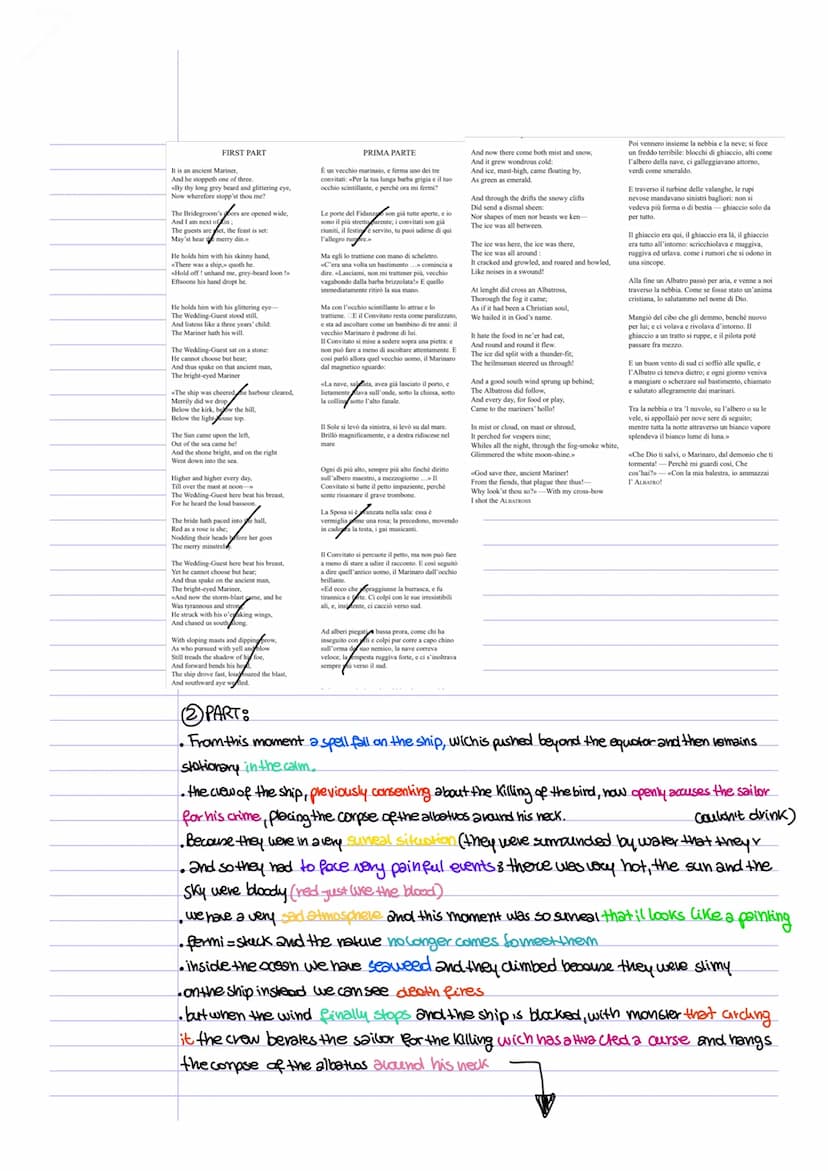 FIRST PART
It is an ancient Mariner,
And he stoppeth one of three.
«By thy long grey beard and glittering eye,
Now wherefore stopp'st thou me?
The Bridegroom's doors are opened wide,
And I am next of kin;
The guests are met, the feast is set:
May'st hear the merry din.»
He holds him with his skinny hand,
«There was a ship,» quoth he.
«Hold off ! unhand me, grey-beard loon !»
Eftsoons his hand dropt he.
He holds him with his glittering eye—
The Wedding-Guest stood still,
And listens like a three years' child:
The Mariner hath his will.
The Wedding-Guest sat on a stone:
He cannot choose but hear;
And thus spake on that ancient man,
The bright-eyed Mariner
«The ship was cheered, the harbour cleared,
Merrily did we drop
Below the kirk, below the hill,
Below the light-house top.
The Sun came upon the left,
Out of the sea came he!
And the shone bright, and on the right
Went down into the sea.
Higher and higher every day,
Till over the mast at noon—»
The Wedding-Guest here beat his breast,
For he heard the loud bassoon.
The bride hath paced into the hall,
Red as a rose is she;
Nodding their heads before her goes
The merry minstrelsy.
The Wedding-Guest here beat his breast,
Yet he cannot choose but hear;
And thus spake on the ancient man,
The bright-eyed Mariner,
«And now the storm-blast came, and he
Was tyrannous and strong:
He struck with his o'ertaking wings,
And chased us south along.
With sloping masts and dipping prow,
As who pursued with yell and blow
Still treads the shadow of his foe,
And forward bends his head,
The ship drove fast, loud roared the blast,
And southward aye we fled.
PRIMA PARTE
È un vecchio marinaio, e ferma uno dei tre
convitati: «Per la tua lunga barba grigia e il tuo
occhio scintillante, e perché ora mi fermi?
Le porte del Fidanzato son già tutte aperte, e io
sono il più stretto parente; i convitati son già
riuniti, il festino è servito, tu puoi udirne di qui
l'allegro rumore.»
Ma egli lo trattiene con mano di scheletro.
«C'era una volta un bastimento …» comincia a
dire. «Lasciami, non mi trattener più, vecchio
vagabondo dalla barba brizzolata!» E quello
immediatamente ritirò la sua mano.
Ma con l'occhio scintillante lo attrae e lo
trattiene. E il Convitato resta come paralizzato,
e sta ad ascoltare come un bambino di tre anni: il
vecchio Marinaro è padrone di lui.
Il Convitato si mise a sedere sopra una pietra: e
non può fare a meno di ascoltare attentamente. E
così parlò allora quel vecchio uomo, il Marinaro
dal magnetico sguardo:
«La nave, salutata, avea già lasciato il porto, e
lietamente filava sull'onde, sotto la chiesa, sotto
la collina, sotto l'alto fanale.
Il Sole si levò da sinistra, si levò su dal mare.
Brillò magnificamente, e a destra ridiscese nel
mare
Ogni dì più alto, sempre più alto finché diritto
sull'albero maestro, a mezzogiorno …» Il
Convitato si batte il petto impaziente, perché
sente risuonare il grave trombone.
La Sposa si è avanzata nella sala: essa è
vermiglia come una rosa; la precedono, movendo
in cadenza la testa, i gai musicanti.
Il Convitato si percuote il petto, ma non può fare
a meno di stare a udire il racconto. E così seguitò
a dire quell'antico uomo, il Marinaro dall'occhio
brillante.
«Ed ecco che sopraggiunse la burrasca, e fu
tirannica e forte. Ci colpì con le sue irresistibili
ali, e, insistente, ci cacciò verso sud.
Ad alberi piegati, a bassa prora, come chi ha
inseguito con urli e colpi pur corre a capo chino
sull'orma del suo nemico, la nave correva
veloce, la tempesta ruggiva forte, e ci s'inoltrava
sempre più verso il sud.
And now there come both mist and snow,
And it grew wondrous cold:
And ice, mast-high, came floating by,
As green as emerald.
And through the drifts the snowy clifts
Did send a dismal sheen:
Nor shapes of men nor beasts we ken—
The ice was all between.
The ice was here, the ice was there,
The ice was all around :
It cracked and growled, and roared and howled,
Like noises in a swound!
At lenght did cross an Albatross,
Thorough the fog it came;
As if it had been a Christian soul,
We hailed it in God's name.
It hate the food in ne'er had eat,
And round and round it flew.
The ice did split with a thunder-fit,
The heilmsman steered us through!
And a good south wind sprung up behind;
The Albatross did follow,
And every day, for food or play,
Came to the mariners' hollo!
In mist or cloud, on mast or shroud,
It perched for vespers nine;
Whiles all the night, through the fog-smoke white,
Glimmered the white moon-shine.»
«God save thee, ancient Mariner!
From the fiends, that plague thee thus!—
Why look'st thou so?» —With my cross-bow
I shot the ALBATROSS
Poi vennero insieme la nebbia e la neve; si fece
un freddo terribile: blocchi di ghiaccio, alti come
l'albero della nave, ci galleggiavano attorno,
verdi come smeraldo.
E traverso il turbine delle valanghe, le rupi
nevose mandavano sinistri bagliori: non si
vedeva più forma o di bestia — ghiaccio solo da
per tutto.
Il ghiaccio era qui, il ghiaccio era là, il ghiaccio
era tutto all'intorno: scricchiolava e muggiva,
ruggiva ed urlava. come i rumori che si odono in
una sincope.
Alla fine un Albatro passò per aria, e venne a noi
traverso la nebbia. Come se fosse stato un'anima
cristiana, lo salutammo nel nome di Dio.
Mangiò del cibo che gli demmo, benché nuovo
per lui; e ci volava e rivolava d'intorno. Il
ghiaccio a un tratto si ruppe, e il pilota poté
passare fra mezzo.
E un buon vento di sud ci soffiò alle spalle, e
l'Albatro ci teneva dietro; e ogni giorno veniva
a mangiare o scherzare sul bastimento, chiamato
e salutato allegramente dai marinari.
Tra la nebbia o tra 'l nuvolo, su l'albero o su le
vele, si appollaiò per nove sere di seguito;
mentre tutta la notte attraverso un bianco vapore
splendeva il bianco lume di luna.»
«Che Dio ti salvi, o Marinaro, dal demonio che ti
tormenta! — Perchè mi guardi così, Che
cos'hai?» — «Con la mia balestra, io ammazzai
l' ALBATRO!
② PART:
• From this moment a spell fall on the ship, wich is pushed beyond the equator and then remains
stationary in the calm.
• the crew of the ship, previously consenting about the killing of the bird, now openly accuses the sailor
for his crime, placing the corpse of the albatros around his neck.
couldn't drink)
• Because they were in a very surreal situation (they were surrounded by water that they
• and so they had to face very painful events: there was very hot, the sun and the
sky were bloody (red just like the blood)
• we have a very sad atmosphere and this moment was so surreal that it looks like a painting
• fermi = stuck and the nature no longer comes to meet them
• inside the ocean we have seaweed and they climbed because they were slimy
• on the ship instead we can see death fires
• but when the wind finally stops and the ship is blocked, with monster that circling
it the crew berates the sailor for the killing wich has attracted a curse and hangs
the corpse of the albatros around his neck